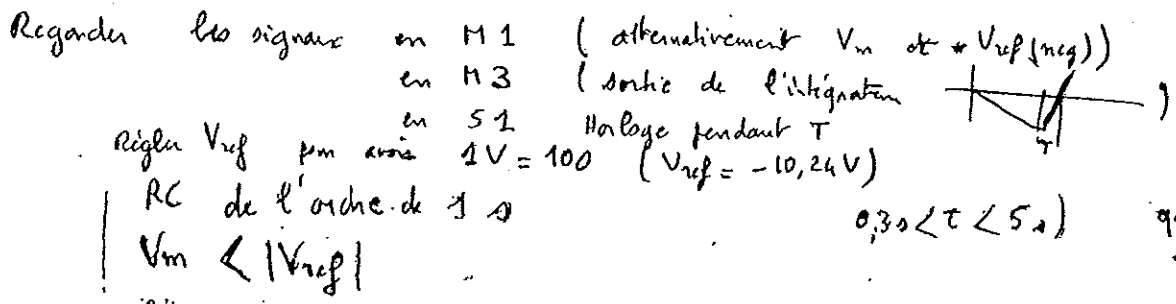 Regarder les signaux en M1 (alternativement Vm et Vref (neg))
en M3 (sortie de l'intégration )
T
en S1 Horloge pendant T
Régler Vref pour avoir 1V = 100 (Vref = -10,24 V)
RC de l'ordre de 1 s 0,3s < τ < 5s)
Vm < |Vref|